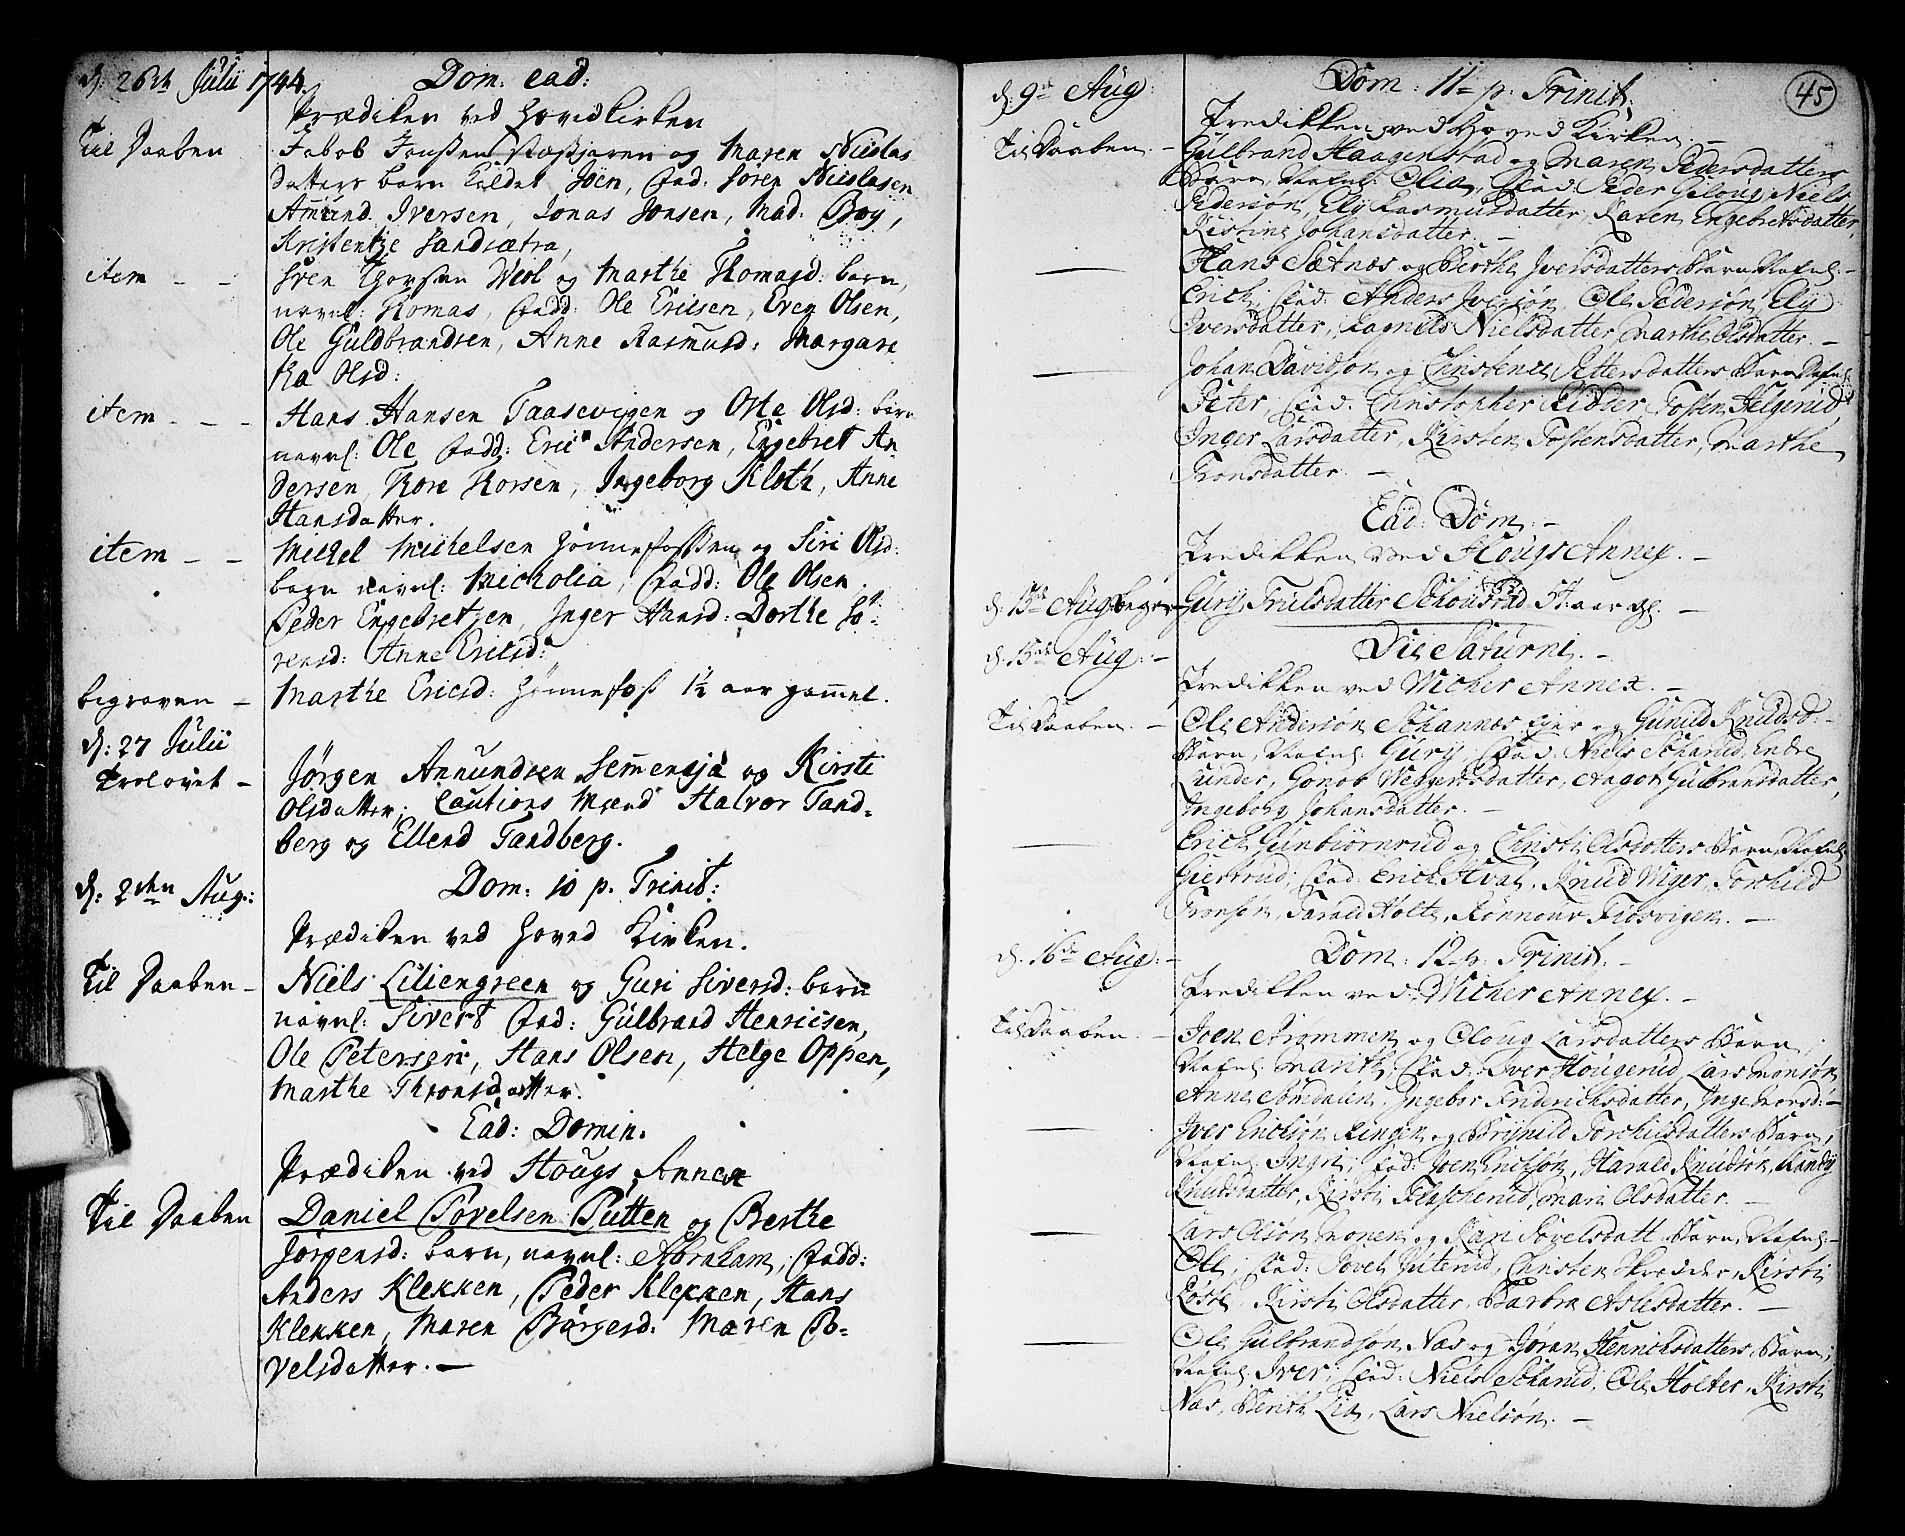 d: 26de Julii 1744. Dom: ead:
Prædiken ved Hovidkirken
Til Daaben Jakob Jensen og Maren Nicolas
datters barn kaldet Joen, fad: Soren Nicolasen
Amund Iversen, Jonas Jonsen, Mad: Boy,
Kristentze Sandsætra,
item - - Sven Thorsen Weol og Marthe Thomasd: barn,
navnl: Thomas, fadd: Ole Ericsen, Even Olsen,
Ole Guldbrandsen, Anne Rasmusd: Margare
tha Olsd:
item - - - Hans Hansen Taasevigen og Oste Olsd: barn
navnl: Ole fadd: Eric Andersen, Engebret An
dersen, Thore Thorsen, Ingeborg Kloth, Anne
Hansdatter.
item - - Michel Michelsen Hønnefossen og Siri Olsd:
barn navnl: Micholia, fadd: Ole Olsen.
Peder Engebretsen, Inger Hansd: Dorthe So-
rensd: Anne Ericsd:
begraven - Marthe Ericsd: Hønnefoss 1½ aar gammel.
d: 27 Julii
Trolovet - Jørgen Amundsen Semmensjø og Kirste
Olsdatter, Cautions Mænd Halvor Tand-
berg og Ellend Tandberg.
d: 2den Aug: Dom: 10 p. Trinit:
Prædiken ved Hoved Kirken.
Til Daaben - Niels Liliengreen og Guri Siversd: barn
navnl: Sivert fad: Gulbrand Henricsen,
Ole Petersen, Hans Olsen, Helge Oppen,
Marthe Thronsdatter.
Ead: Domin.
Prædiken ved Hougs Annex
Til Daaben Daniel Povelsen Putten og Berthe
Jørgensd: barn, navnl: Abraham, fadd:
Anders Klekken, Peder Klekken, Hans
Klekken, Maren Børgesd: Maren Po-
velsdatter. -
45
d: 9de Aug: Dom: 11 p. Trinit:
Predikken ved Hoved Kirken. -
Til Daaben. - Gulbrand Haagenstad og Maren Pedersdatters
Barn, Nafnl: Olia, Fad: Peder Gloug, Niels
Pedersøn, Ely Rasmusdatter, Karen Engebretsdatter,
Kirstine Johansdatter. -
— Hans Sætnæs og Berthe Iversdatters Barn Nafnl: -
Erich, Fad: Anders Iversøn, Ole Pedersøn, Ely
Iversdatter, Ragnild Nielsdatter, Marthe Olsdatter. -
— Johan Davidsøn og Christence Pettersdatters Barn Nafnl:
Peter, Fad: Christopher Ridder, Tosten Helgerud
Inger Larsdatter, Kirsten Tostensdatter, Marthe
Tronsdatter. -
Ead: Dom: -
Predikken ved Hougs Annex. -
d. 13de Aug: begr: Gury Trulsdatter Schoustad 57. aar gl. -
d. 15de Aug: - Die Saturni. -
Predikken ved Wicher Annex. -
Til Daaben. - Ole Andersøn Johannes ejer og Gunild Knudsd: -
Barn, Nafnl: Gury, Fad: Niels Scharud, Endre
Lunder, Gonob Weggersdatter, Aagot Gulbransdatter,
Ingeborg Johansdatter. -
— Erich Gunbiørnrud og Christi Olsdatters Barn, Nafnl:
Giertrud, Fad: Erich Hval, Knud Wiger, Torchild
Tronsøn, Tarald Holte, Rønnour Fiosvigen. -
d. 16de Aug: - Dom: 12 p. Trinit: -
Predikken ved: Wicher Annex. -
Til Daaben. - Joen Strommen og Oloug Larsdatters Barn,
Nafnl: Marith, Fad: Iver Hougerud, Lars Monsøn
Anne Somdalen, Ingebor Friderichsdatter, Inge Iversd: -
— Iver Erichsøn Ringen og Brynild Torchilsdatters Barn,
Nafnl: Ingri, Fad: Joen Erichsøn, Harald Knudsøn, Randy
Knudsdatter, Kirsti Flascherud, Mari Olsdatter. -
— Lars Olsøn Monen og Kari Povelsdatt: Barn, Nafnl: -
Ole, Fad: Povel Juterud, Christen Skredder, Kirsti
Løste, Kirsti Olsdatter, Barbra Aslesdatter. -
— Ole Gulbrandsøn Næs og Jøran Henrichsdatters Barn,
Nafnl: Iver, Fad: Niels Scharud, Ole Holter, Kirsti
Næs, Berith Lia, Lars Nielsøn. -